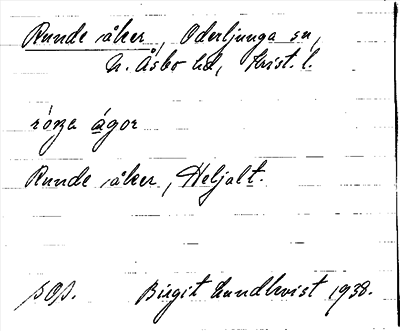 Runde åker, Oderljunga sn,
N. Åsbo hd, Krist. l.
Runde åker, Heljalt.
Birgit Lundkvist 1938.